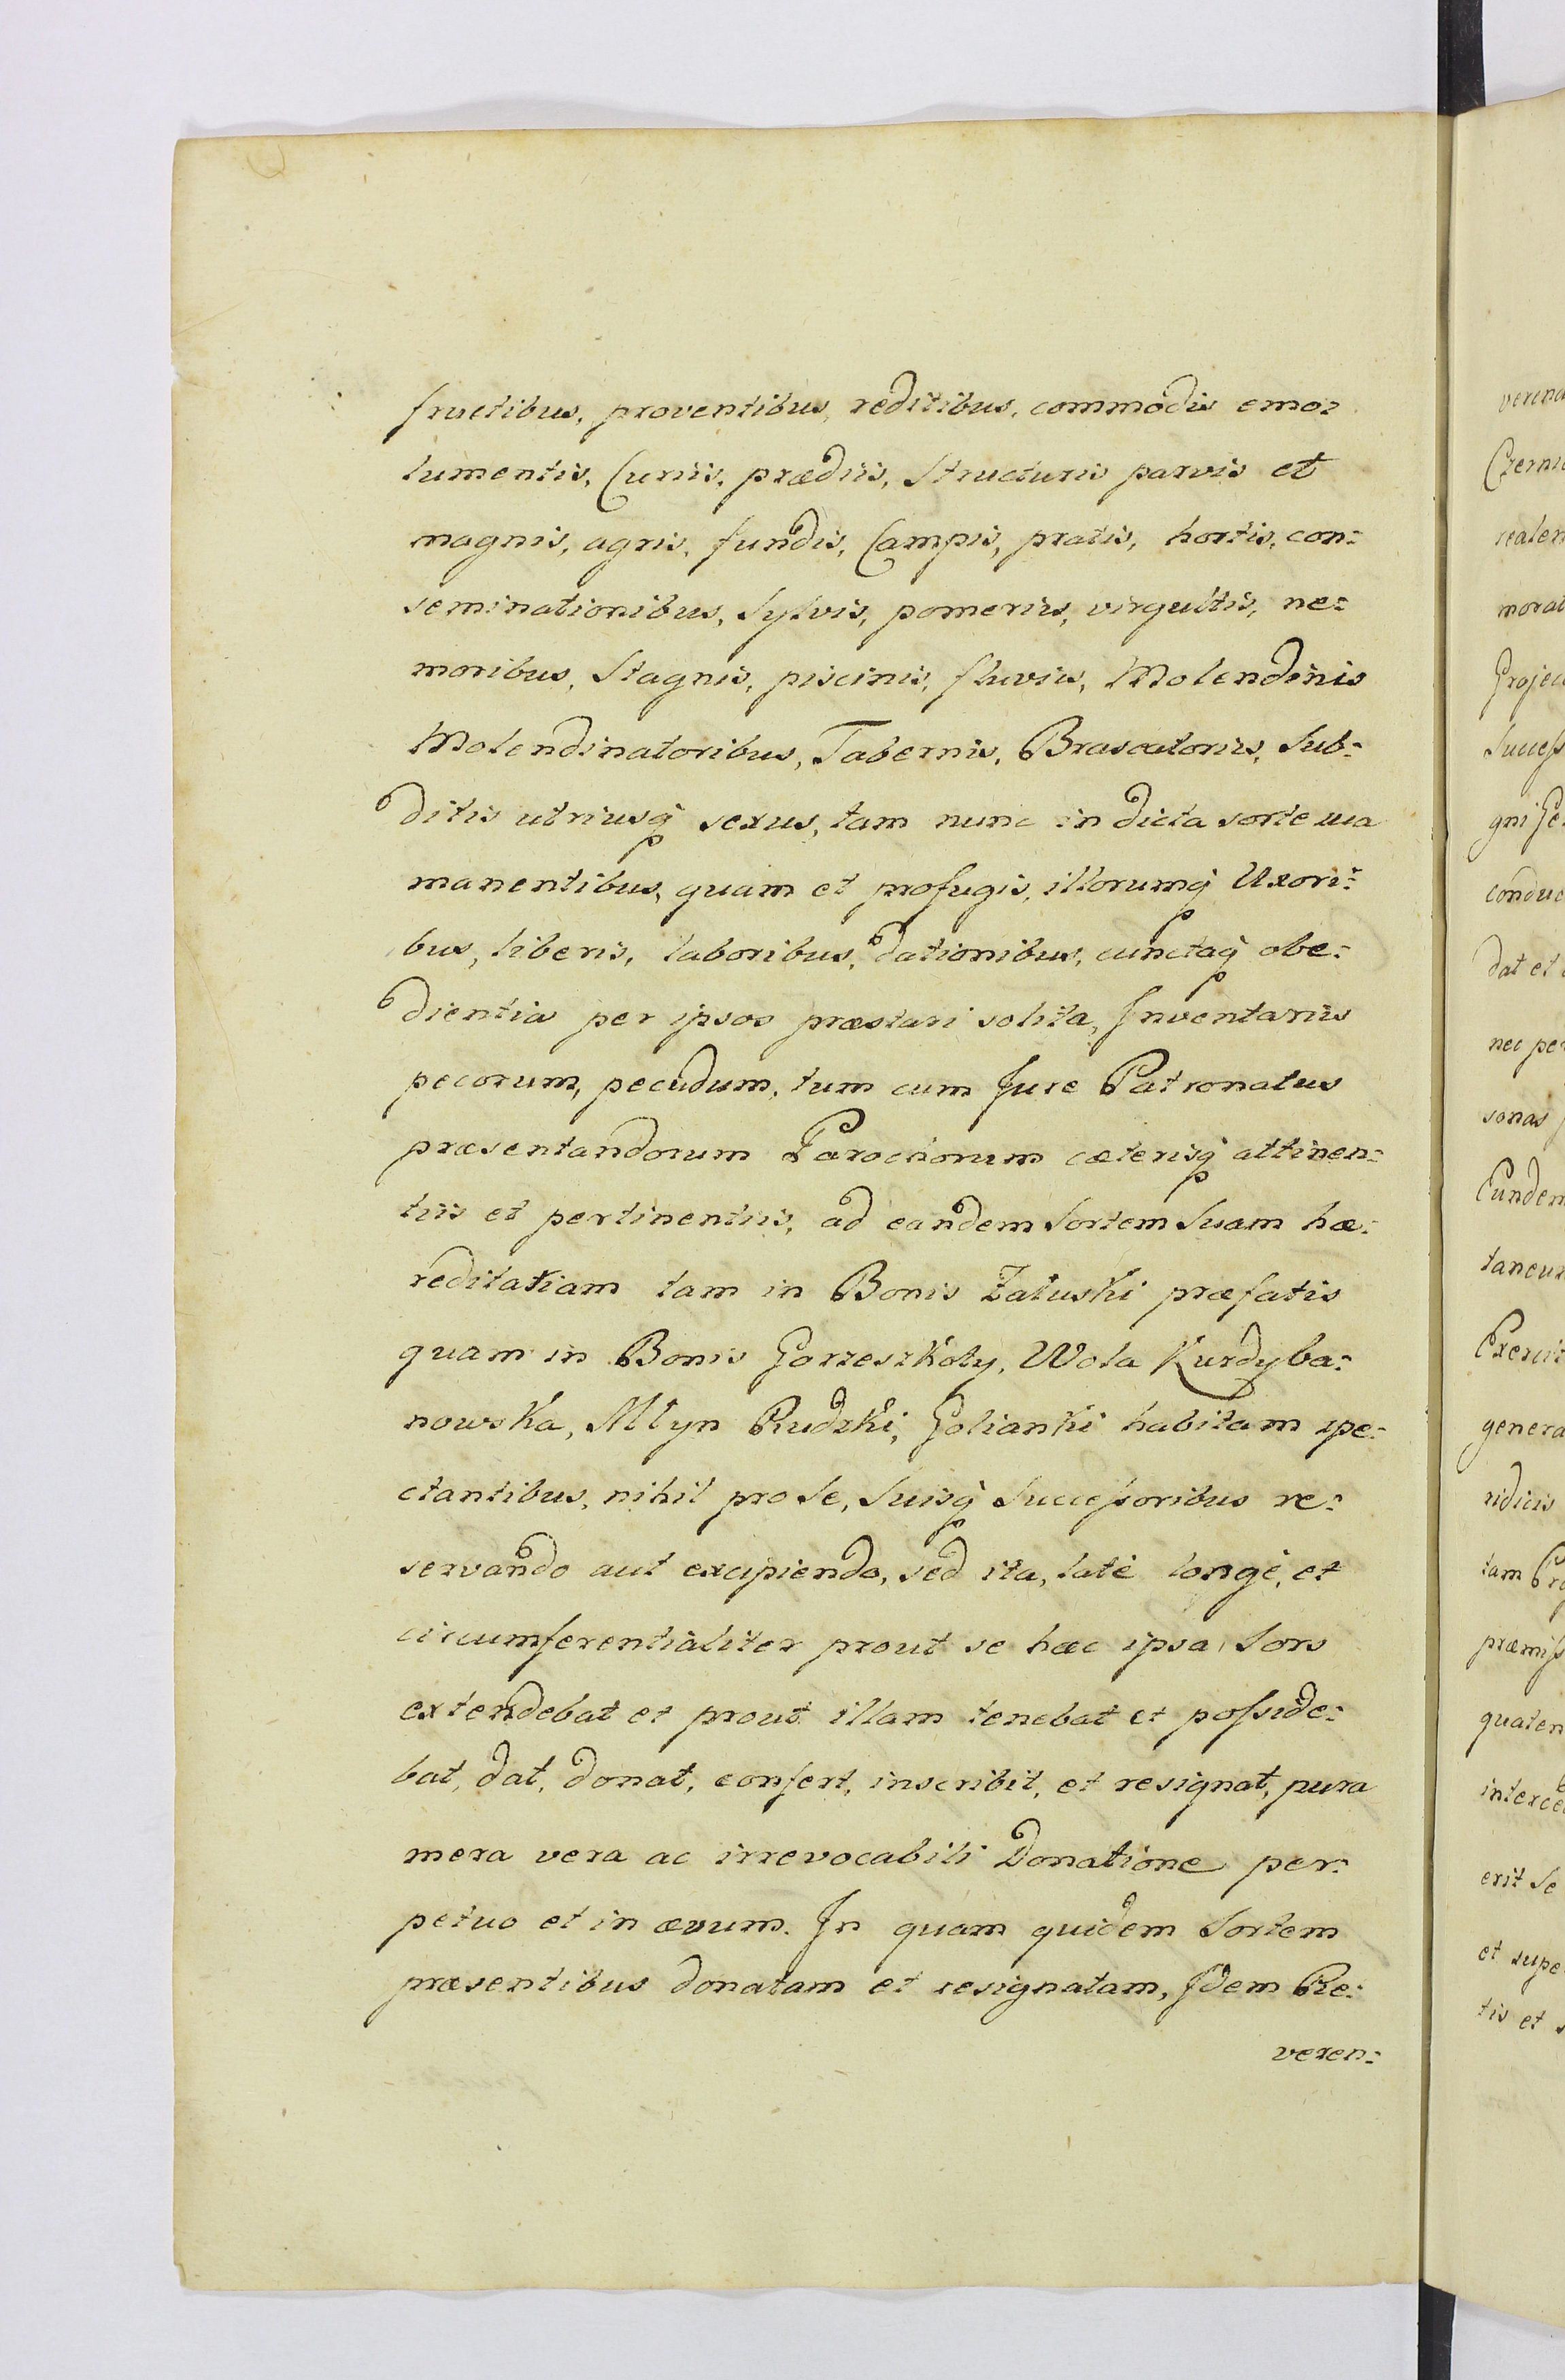 fructibus, proventibus, reditibus, commodis emo:
lumentis, Curiis, prædiis, Structuris parvis et
magnis, agris, fundis, Campis, pratis, hortis, con:
seminationibus, Sylvis, pomeriis, virgultis, ne:
moribus, Stagnis, piscinis, fluviis, Molendinis
Molendinatoribus, Tabernis, Braseatoriis, Sub:
ditis utriusq́ sexus, tam nunc in dicta sorte
manentibus, quam et profugis, illorumq́ Uxori:
bus, liberis, laboribus, dationibus, cunctaq́ obe:
dientia per ipsos præstari solita, Inventariis
pecorum, pecudum, tum cum Jure Patronatus
præsentandorum Parochorum cæterisq́ attinen:
tiis et pertinentiis, ad eandem Sortem Suam hæ:
reditatiam tam in Bonis Załuski præfatis
quam in Bonis Gorzeszkoły, Wola Kurdyba:
nowska, Młyn Rudzki, Golianki habitam spe:
ctantibus, nihil pro Se, Suisq́ Successoribus re:
servando aut excipiendo, sed ita, latè longè, et
circumferentialiter prout se hæc ipsa Sors
extendebat et prout illam tenebat et posside:
bat, dat, donat, confert, inscribit, et resignat, pura
mera vera ac irrevocabili Donatione per:
petuo et in ævum. In quam quidem Sortem
præsentibus donatam et resignatam, Idem Re:
veren:
Czerni
morat
gni
dat et
nec pe
sonas
Eundem
genera
ridicis
tam
præmiss
quaten
erit Se
et supe
tis et